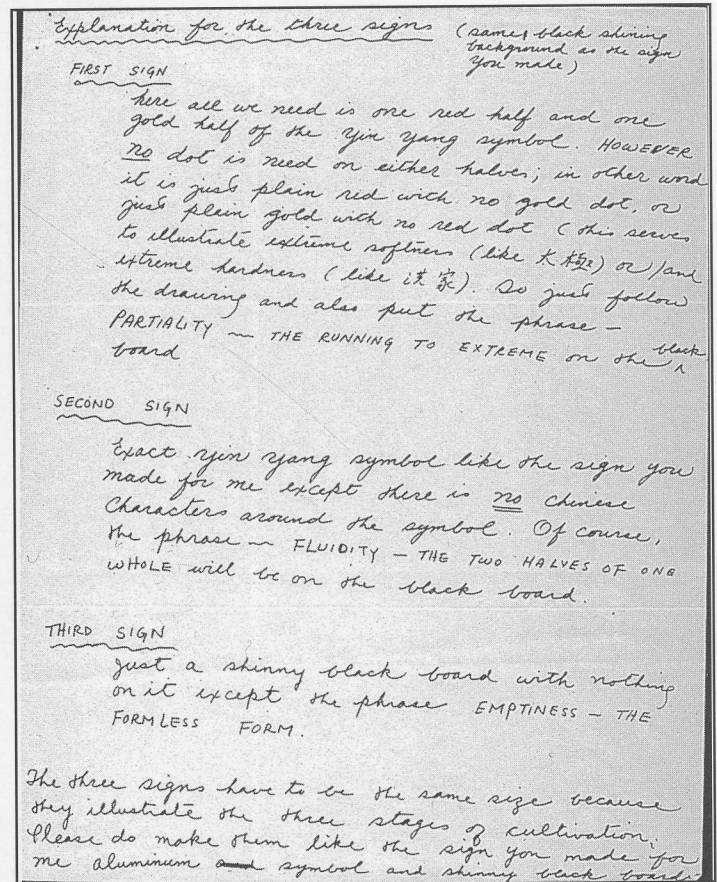 Explanation for the three signs (same, black shining
background as the sign
you made)
FIRST SIGN
here all we need is one red half and one
gold half of the Yin Yang symbol. HOWEVER
no dot is need on either halves; in other word
it is just plain red with no gold dot, or
just plain gold with no red dot (this serves
to illustrate extreme softness (like 太極) or/and
extreme hardness (like 洪家). So just follow
the drawing and also put the phrase —
PARTIALITY — THE RUNNING TO EXTREME on the black
board
SECOND SIGN
Exact Yin Yang symbol like the sign you
made for me except there is no chinese
Characters around the symbol. Of course,
the phrase — FLUIDITY — THE TWO HALVES OF ONE
WHOLE will be on the black board.
THIRD SIGN
Just a shinny black board with nothing
on it except the phrase EMPTINESS — THE
FORMLESS FORM.
The three signs have to be the same size because
they illustrate the three stages of cultivation.
Please do make them like the sign you made for
me aluminum symbol and shinny black board